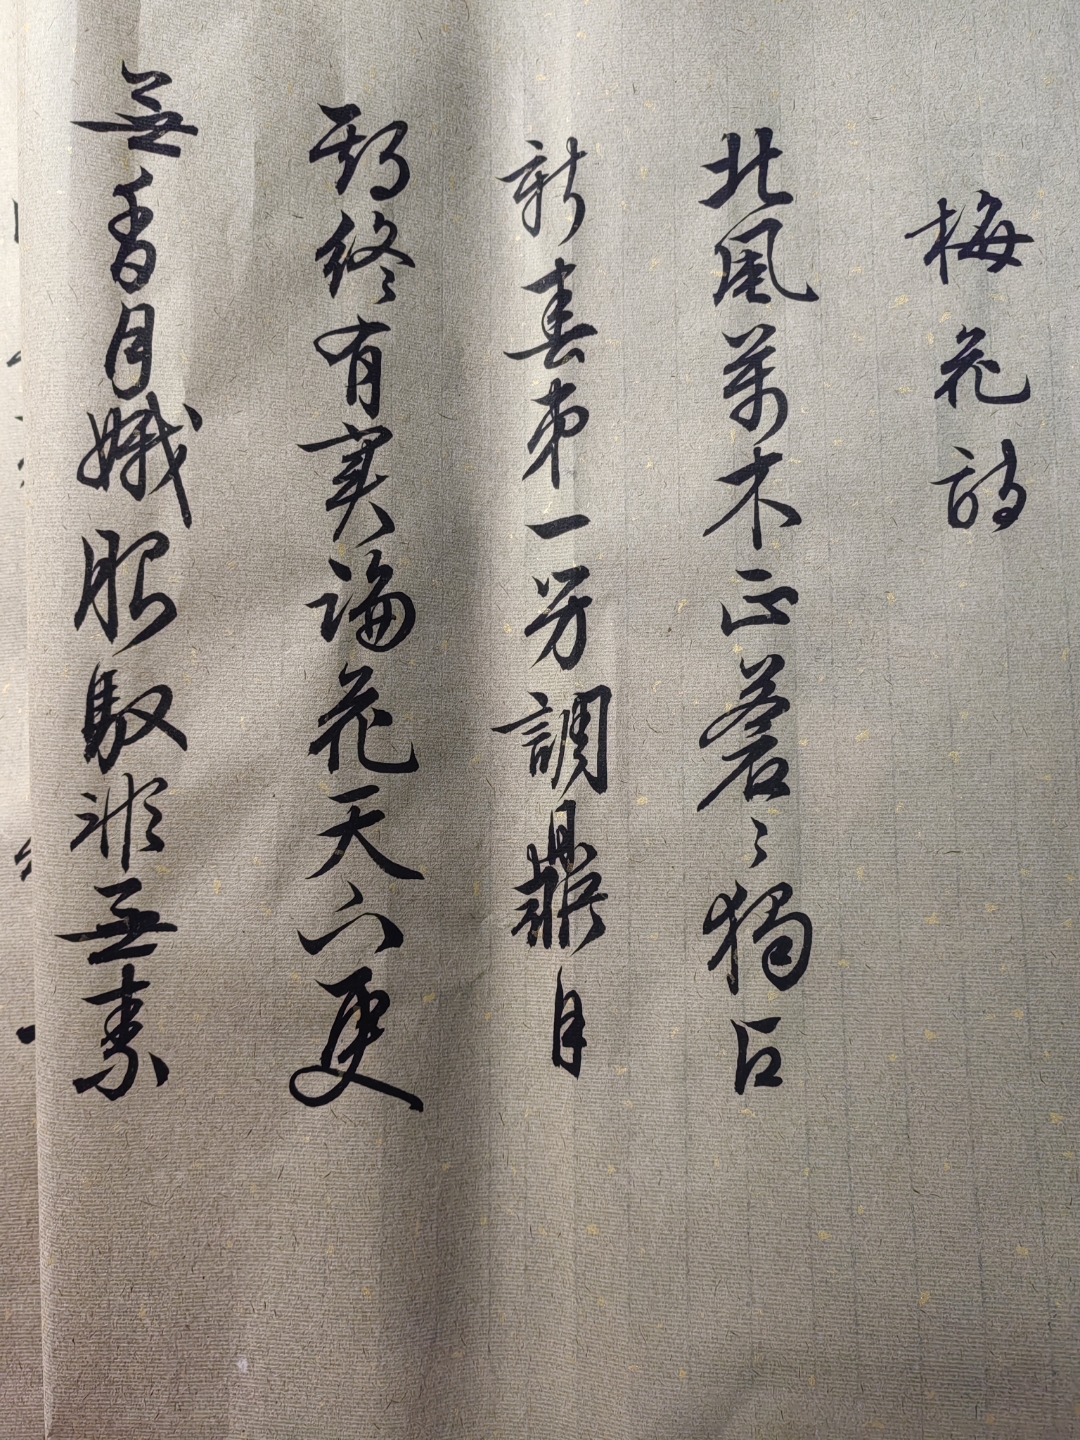 梅花詩
北風萬木正蒼〻獨占
新春第一芳調鼎自
期終有實論花天下更
無香月娥服馭非無素